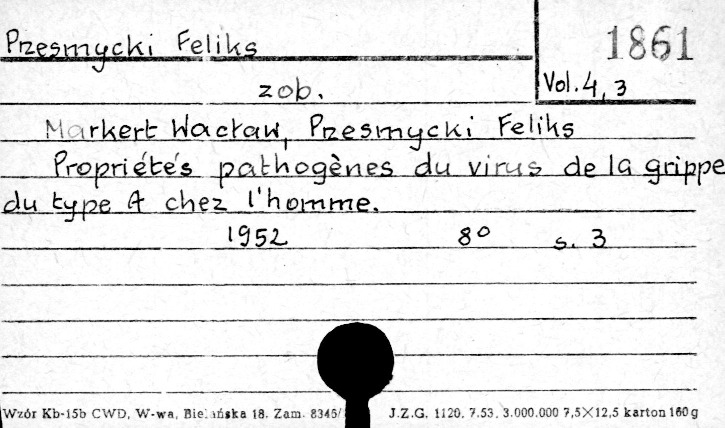 Przesmycki Feliks
1861
Vol. 4, 3
zob.
Markert Wacław, Przesmycki Feliks
Propriétés pathogènes du virus de la grippe
du type A chez l'homme.
1952 8° s. 3
Wzór Kb-15b CWD, W-wa, Bielańska 18. Zam. 8346/ J.Z.G. 1120. 7.53. 3.000.000 7,5×12,5 karton 160 g